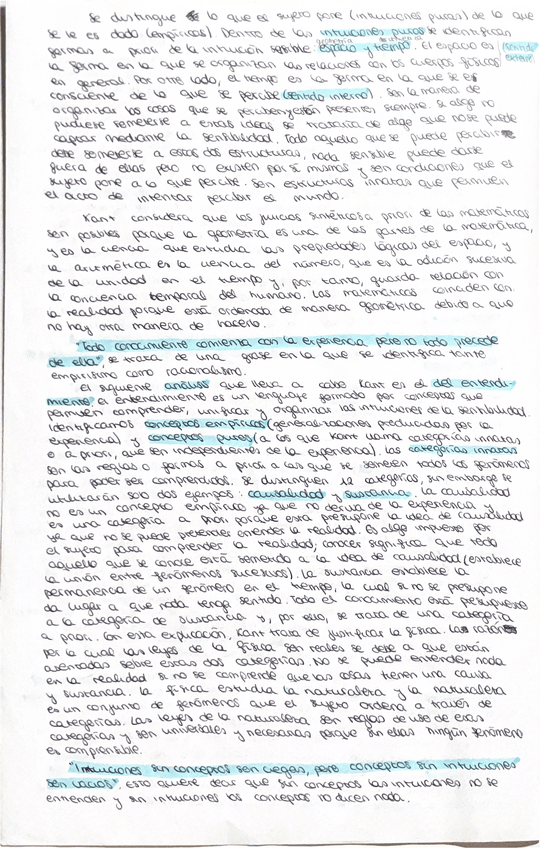 Se distingue lo que el sujeto pone (intuiciones puras) de lo que
se le es dado (empíricas). Dentro de las intuiciones puras se identifican
geometría aritmética
formas a priori de la intuición sensible: espacio y tiempo. El espacio es (sentido externo)
la forma en la que se organizan las relaciones con los cuerpos físicos
en general. Por otro lado, el tiempo es la forma en la que se es
consciente de lo que se percibe (sentido interno). Son la manera de
organizar las cosas que se perciben y están presentes siempre. Si algo no
pudiese someterse a estas ideas se trataría de algo que no se puede
captar mediante la sensibilidad. Todo aquello que se puede percibir
debe someterse a estas dos estructuras, nada sensible puede darse
fuera de ellas pero no existen por sí mismas y son condiciones que el
sujeto pone a lo que percibe. Son estructuras innatas que permiten
el acto de intentar percibir el mundo.
Kant considera que los juicios sintéticos a priori de las matemáticas
son posibles porque la geometría es una de las partes de la matemática,
y es la ciencia que estudia las propiedades lógicas del espacio, y
la aritmética es la ciencia del número, que es la adición sucesiva
de la unidad en el tiempo y, por tanto, guarda relación con
la conciencia temporal del humano. Las matemáticas coinciden con
la realidad porque está ordenada de manera geométrica debido a que
no hay otra manera de hacerlo.
"Todo conocimiento comienza con la experiencia pero no todo procede
de ella", se trata de una frase en la que se identifica tanto
empirismo como racionalismo.
El siguiente análisis que lleva a cabo Kant es el del entendi-
miento, el entendimiento es un lenguaje formado por conceptos que
permiten comprender, unificar y organizar las intuiciones de la sensibilidad.
Identificamos conceptos empíricos (generalizaciones producidas por la
experiencia) y conceptos puros (a los que Kant llama categorías innatas
o a priori, que son independientes de la experiencia). Las categorías innatas
son las reglas o formas a priori a las que se someten todos los fenómenos
para poder ser comprendidos. Se distinguen 12 categorías, sin embargo se
utilizarán solo dos ejemplos: causalidad y sustancia. La causalidad
no es un concepto empírico ya que no deriva de la experiencia y
es una categoría a priori porque esta presupone la idea de causalidad
ya que no se puede pretender entender la realidad. Es algo impuesto por
el sujeto para comprender la realidad; conocer significa que todo
aquello que se conoce está sometido a la idea de causalidad (establece
la unión entre fenómenos sucesivos). La sustancia establece la
permanencia de un fenómeno en el tiempo, la cual si no se presupone
da lugar a que nada tenga sentido. Todo el conocimiento está presupuesto
a la categoría de sustancia y, por ello, se trata de una categoría
a priori. Con esta explicación, Kant trata de justificar la física. La razón
por la cual las leyes de la física son reales se debe a que están
asentadas sobre estas dos categorías. No se puede entender nada
en la realidad si no se comprende que las cosas tienen una causa
y sustancia. La física estudia la naturaleza y la naturaleza
es un conjunto de fenómenos que el sujeto ordena a través de
categorías. Las leyes de la naturaleza son reglas de uso de esas
categorías y son universales y necesarias porque sin ellas ningún fenómeno
es comprensible.
"Intuiciones sin conceptos son ciegas, pero conceptos sin intuiciones
son vacíos", esto quiere decir que sin conceptos las intuiciones no se
entienden y sin intuiciones los conceptos no dicen nada.